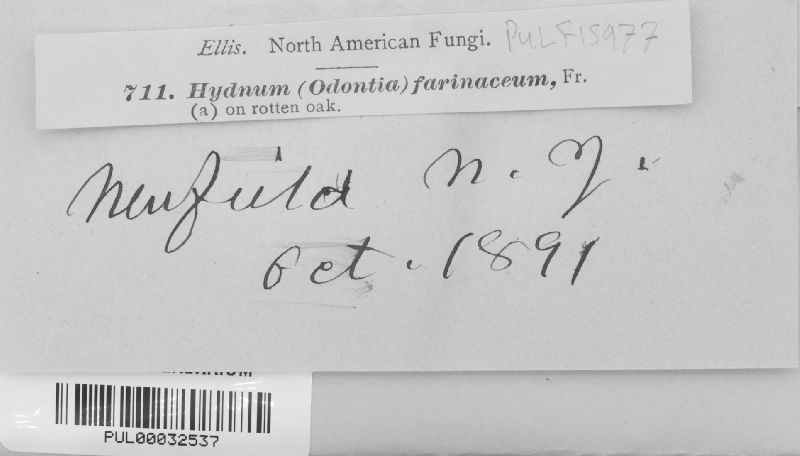 Ellis. North American Fungi. PULF15977
711. Hydnum (Odontia) farinaceum, Fr.
(a) on rotten oak.
Newfield N. J.
Oct. 1891
PUL00032537